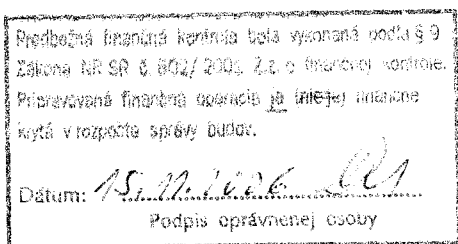 Predbežná finančná kontrola bola vykonaná podľa § 9
Zákona NR SR č. 502/ 2001 Z.z. o finančnej kontrole.
Pripravovaná finančná operácia je (nieje) finančne
krytá v rozpočte správy budov.
Dátum: 15. 11. 2006
Podpis oprávnenej osoby